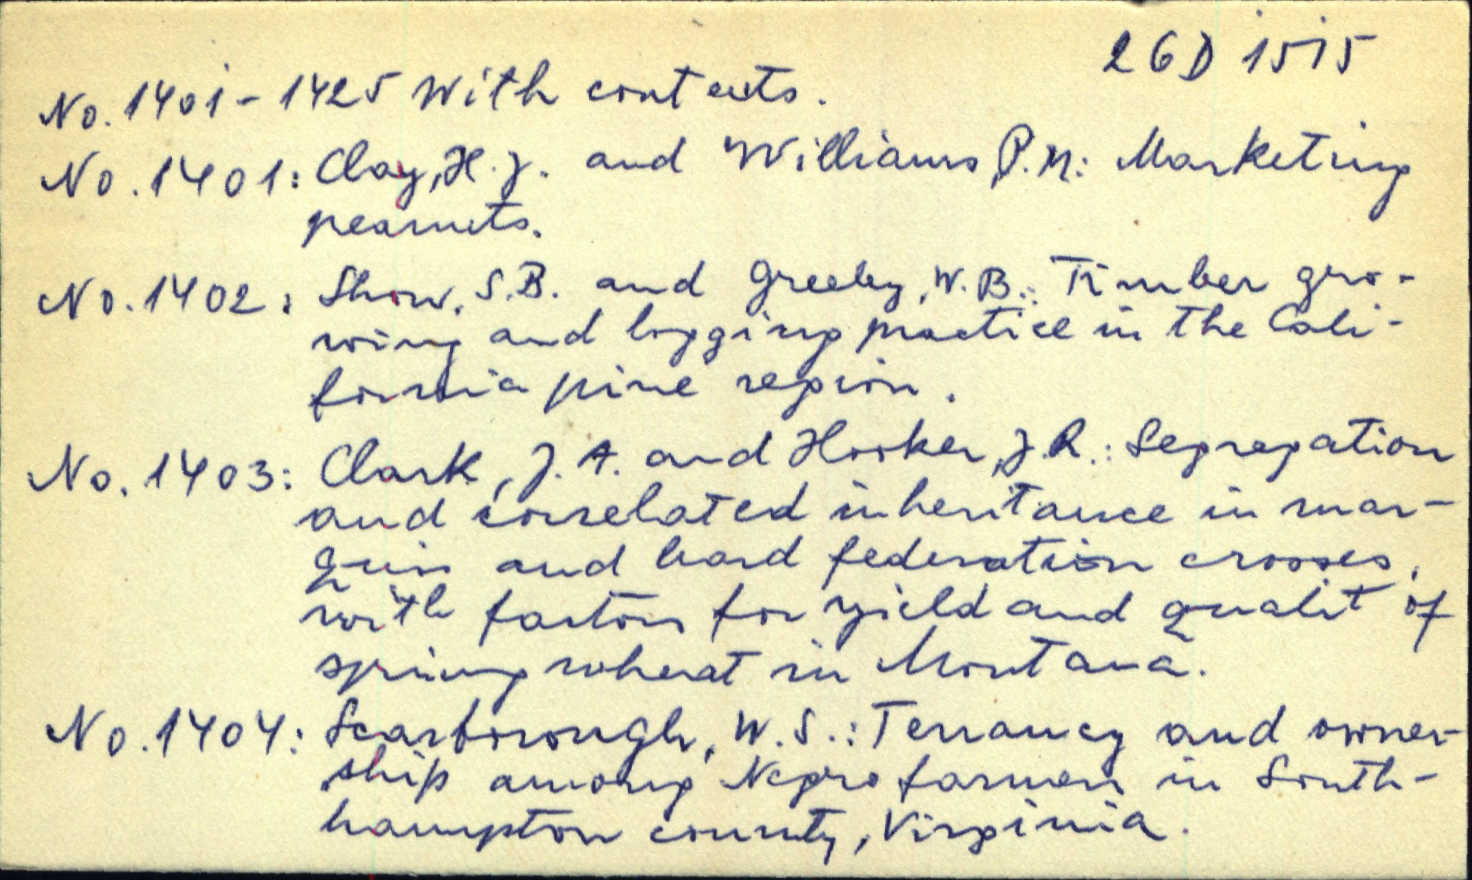 26D 1515
No. 1401 - 1425 With contents.
No. 1401: Clay, H. J. and Williams, P. M: Marketing
peanuts.
No. 1402: Show, S.B. and Greeley, W. B.: Timber gro-
wing and logging practice in the Cali-
fornia pine region.
No. 1403: Clark, J. A. and Hooker, J. R.: Segregation
and correlated inheritance in mar-
quis and hard federation crosses,
with factors for yield and qualit of
spring wheat in Montana.
No. 1404: Scarborough, W. S.: Tenancy and owner-
ship among Negro farmers in South-
hampton county, Virginia.